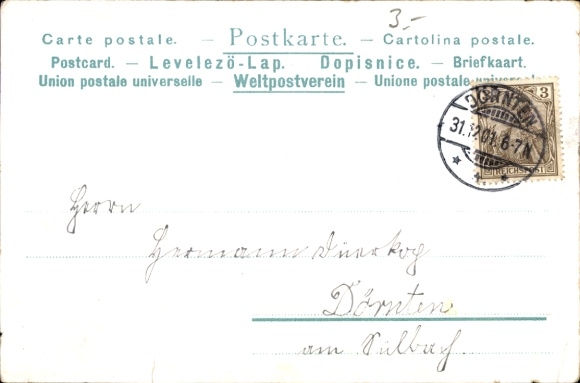 3.-
Carte postale. — Postkarte. — Cartolina postale.
Postcard. — Levelezö-Lap. Dopisnice. — Briefkaart.
Union postale universelle — Weltpostverein — Unione postale universale
3
DÖRNTEN
31.12.01. 6-7N
REICHSPOST
Herrn
Hermann Duerkop
Dörnten
am Sülbach.